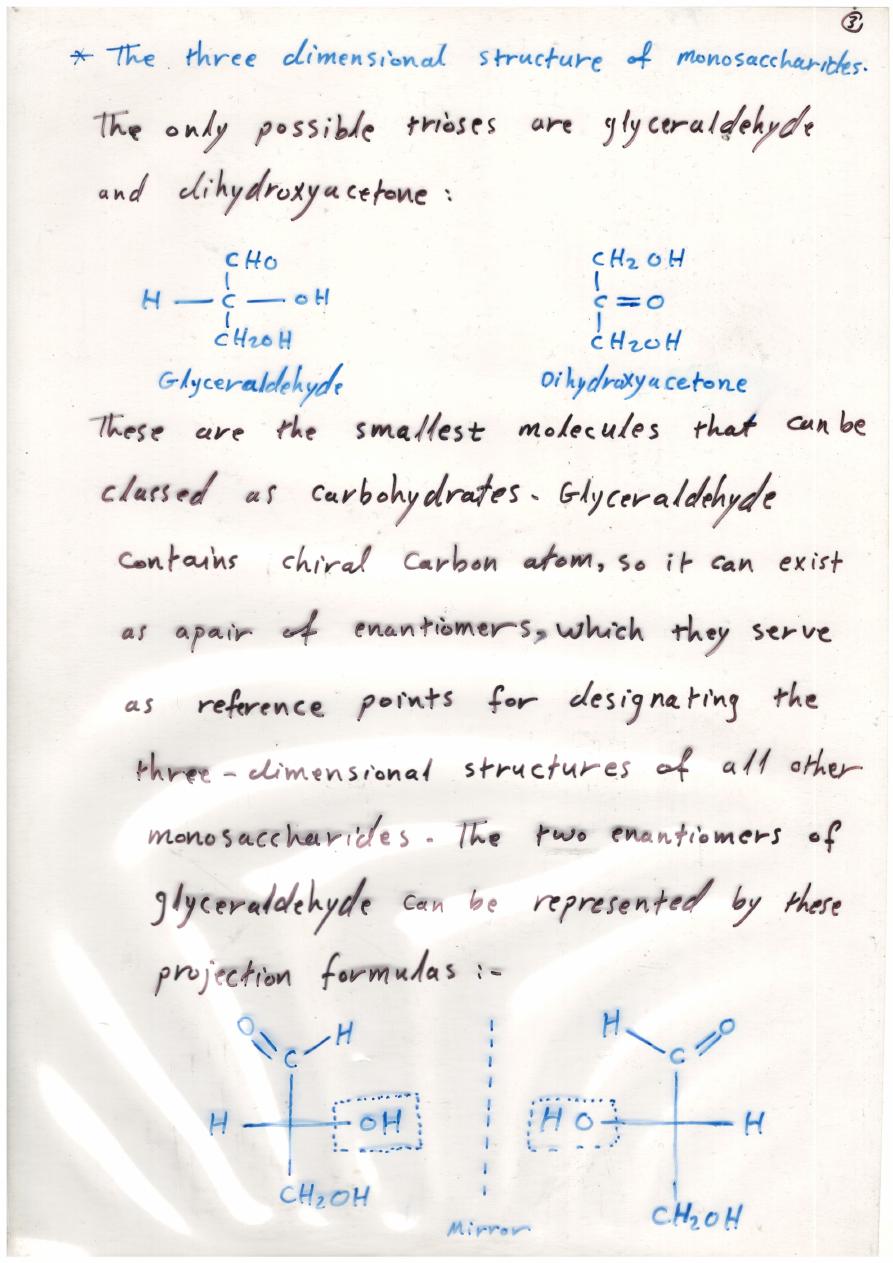 3
* The three dimensional structure of monosaccharides.
The only possible trioses are glyceraldehyde
and dihydroxyacetone :
CHO
H — C — OH
CH2OH
Glyceraldehyde
CH2OH
C = O
CH2OH
Dihydroxyacetone
These are the smallest molecules that can be
classed as carbohydrates. Glyceraldehyde
contains chiral carbon atom, so it can exist
as apair of enantiomers, which they serve
as reference points for designating the
three-dimensional structures of all other
monosaccharides. The two enantiomers of
glyceraldehyde can be represented by these
projection formulas :-
O H
C
H OH
CH2OH
Mirror
H O
C
HO H
CH2OH